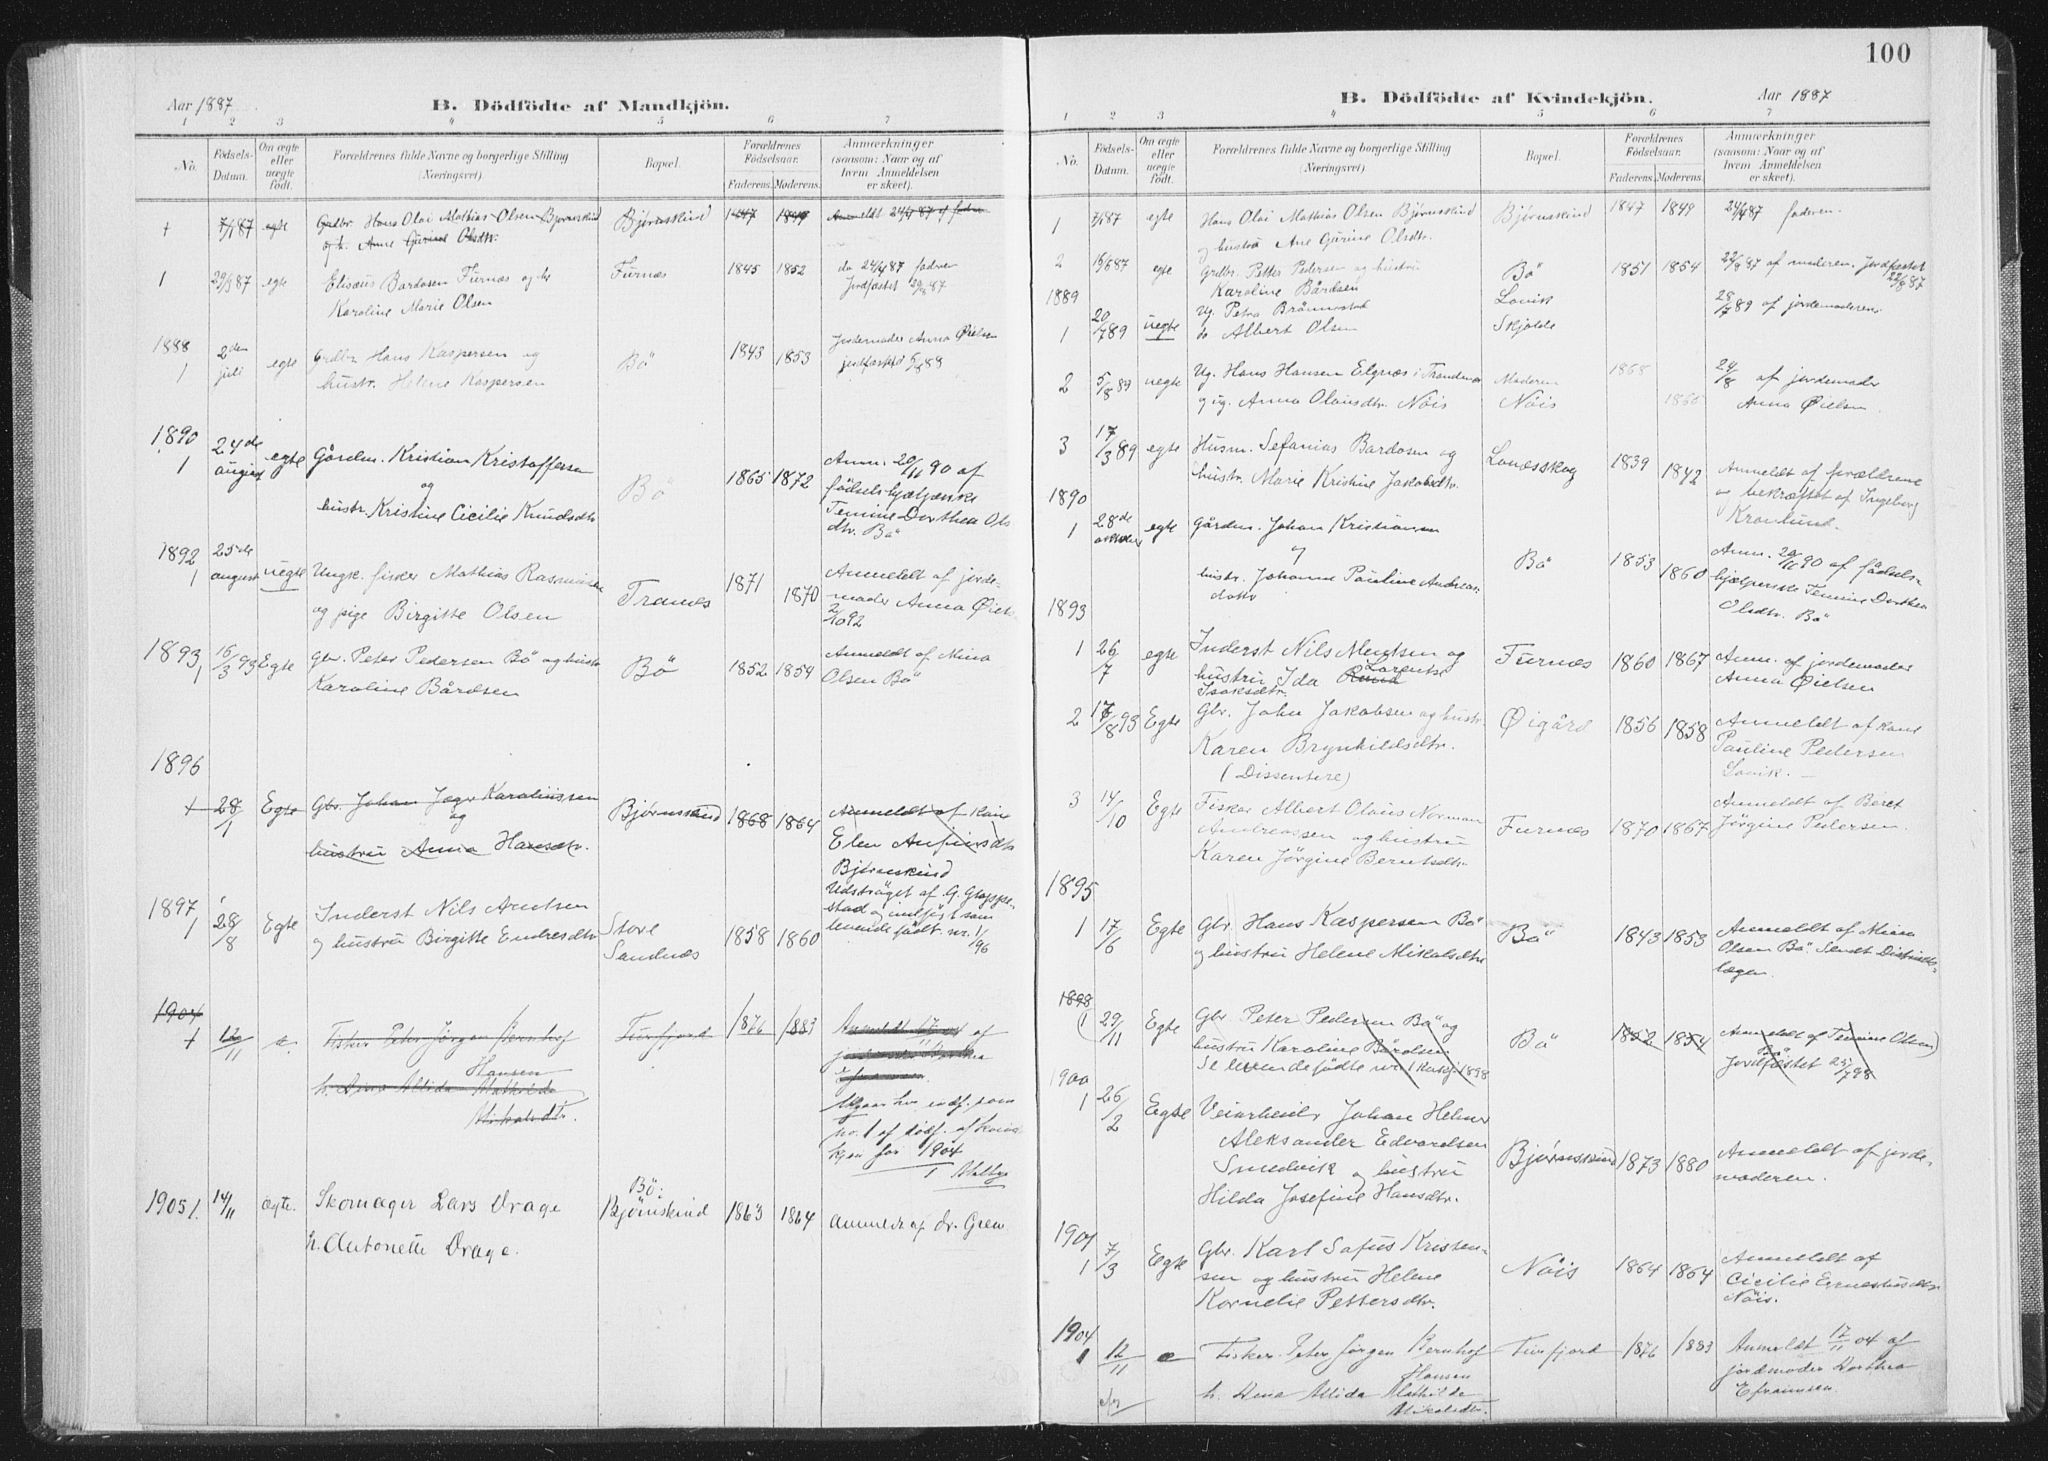 Aar 1887. B. Dödfödte af Mandkjön.
1 2 3 4 5 6 7
No. Födsels-Datum. Om ægte eller uægte födt. Forældrenes fulde Navne og borgerlige Stilling (Næringsvei). Bopæl. Forældrenes Födselsaar. Faderens. Moderens. Anmærkninger (saasom: Naar og af hvem Anmeldelsen er skeet).
+ 7/1 87 egte Grdbr. Hans Olai Mathias Olsen Bjørnskind Bjørnskind 1847 1849 Anmeldt 24/4 87 af faderen
og h. Anne Gurine Olsdtr.
1 29/3 87 egte Elisæus Bardosen Furnæs og h. Furnæs 1845 1852 do 24/4 87 faderen
Karoline Marie Olsen Jordfæstet
1888
1 2den juli egte Grdbr. Hans Kaspersen og Bö 1843 1853 Jordemoder Anna Øielsen
hustr. Helene Kaspersen jordfæstet 5/8 88
1890
1 24de august egte Gårdm. Kristian Kristoffersen Bö 1865 1872 Anm. 20/11 90 af
og fødselshjælperske
hustr. Kristine Cicilie Knudsdtr Temine Dorthea Ols
dtr. Bö
1892
1 25de august uegte Ungk. fisker Mathias Rasmussen Tranes 1871 1870 Anmeldt af jorde-
og pige Birgitte Olsen moder Anna Øiels.
2/10 92
1893
1 16/3 93 Egte Gbr. Peter Pedersen Bö og hustr Bö 1852 1854 Anmeldt af Mina
Karoline Bårdsen Olsen Bö
1896
+ 28/1 Egte Gbr. Johan Jegr Karoliussen Bjørnskind 1868 1864 Anmeldt af kone
og Elen Anfinsdtr
hustru Anna Hansdtr. Bjørnskind
Udstrøget af G. Grøppe-
stad og indført som
levende født nr. 1/96
1897
1 28/8 Egte Inderst Nils Antsen Store 1858 1860
og hustru Birgitte Endresdtr Sandnes
1904
+ 12/11 e. Fisker Peter Jørgen Bernhof Furfjord 1876 1883 Anmeldt 17/11 04 af
Hansen jordemoder Dorthea
h. Anna Alida Mathilde Efraimsen.
Mikalsdtr. Utgaar her indf. som
no. 1 af dødf. af Kvind
kjøn for 1904
1905 1. 14/11 ægte. Skomager Lars Drage Bö: Bjørnskind 1863 1864 anmeldt af dr. Gren
h. Antonette Drage.
100
B. Dödfödte af Kvindekjön. Aar 1887
1 2 3 4 5 6 7
No. Födsels-Datum. Om ægte eller uægte födt. Forældrenes fulde Navne og borgerlige Stilling (Næringsvei). Bopæl. Forældrenes Födselsaar. Faderens. Moderens. Anmærkninger (saasom: Naar og af hvem Anmeldelsen er skeet).
1 7/1 87 egte Hans Olai Mathias Olsen Bjørnskind Bjørnskind 1847 1849 24/4 87 faderen.
og hustru Ane Gurine Olsdtr.
2 15/6 87 egte Grdbr. Petter Pedersen og hustru Bö 1851 1854 22/8 87 af moderen. Jordfæstet 22/8 87
Karoline Bårdsen
1889
1 20/7 89 uegte Ug. Petra Brønnestad Lovik 28/7 89 af jordemoderen
do Albert Olsen Skjolde
2 5/8 89 uegte Ug. Hans Hansen Elgnæs i Trondenæs Moderen 1868 24/8 af jordemoder
og ug. Anna Olausdtr. Nöis Nöis 1866 Anna Øielsen.
3 17/3 89 egte Husm. Sefanias Bardosen og Lovæsskog 1839 1842 Anmeldt af forældrene
hustr. Marie Kristine Jakobsdtr. og bekræftet af Ingeborg
Kronlund.
1890
1 28de oktober egte Gårdm. Johan Kristiansen Bö 1853 1860 Anm. 20/11 90 af fødsels-
og hjælperske Temine Dorthea
hustr. Johanne Pauline Andreas- Olsdtr. Bö
dotr
1893
1 26/7 egte Inderst Nils Mentsen og Furnæs 1860 1867 Anm. af jordemoder
hustru Ida Lorentse Anna Øielsen
Isaksdtr.
2 17/8 93 Egte Gbr. John Jakobsen og hustr. Øigård 1856 1858 Anmeldt af kone
Karen Brynhildsdtr. Pauline Pedersen
(Dissentere) Lovik. –
3 14/10 Egte Fisker Albert Olaus Norman Furnæs 1870 1867 Anmeldt af Beret
Andreassen og hustru Jørgine Pedersen.
Karen Jørgine Berntsdtr.
1895
1 17/6 Egte Gbr. Hans Kaspersen Bö Bö 1843 1853 Anmeldt af Mina
og hustru Helene Mikalsdtr Olsen Bö. Sendt Distrikts-
lægen.
1898
1 29/11 Egte Gbr. Peter Pedersen Bö og Bö 1852 1854 Anmeldt af Temine Olsen
hustru Karoline Bårdsen Bö
Se levendefødte nr. 1 1898 Jordfæstet 25/7 98
1900
1 26/2 Egte Veiarbeider Johan Helmer Bjørnskind 1873 1880 Anmeldt af jorde-
Aleksander Edvardsen moderen.
Smedvik og hustru
Hilda Josefine Hansdtr.
1901
1 7/3 Egte Gbr. Karl Sofus Kristen- Nöis 1864 1864 Anmeldt af
sen og hustru Helene Cicilie Ernestusdtr.
Kornelie Pettersdtr. Nöis.
1904
1 12/11 e Fisker Peter Jørgen Bernhof Furfjord 1876 1883 Anmeldt 17/11 04 af
Hansen jordmoder Dorthea
h. Anna Alida Mathilde Efraimsen.
Mikalsdtr.